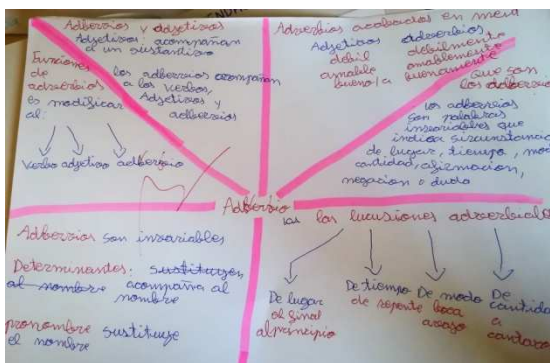 Adverbios y adjetivos
Adjetivos: acompañan
a un sustantivo
Funciones
de
adverbios
es modificar
al:
los adverbios acompañan
a los verbos,
Adjetivos y
adverbios
Verbo adjetivo adverbio
Adverbios acabados en ment
Adjetivos adverbios
debil debilmente
amable amablemente
bueno/a buenamente
que son
los adverbios
los adverbios
son palabras
invariables que
indica circunstancia
de lugar, tiempo, mod
cantidad, afirmacion,
negacion o duda
Adverbio
Adverbios son invariables
Determinantes: sustituyen
al nombre acompaña al
nombre
pronombre sustituye
el nombre
las locusiones adverbiale
De lugar
al final
al principio
De tiempo
de repente
De modo
boca
abajo
De
cantida
a
cantaro